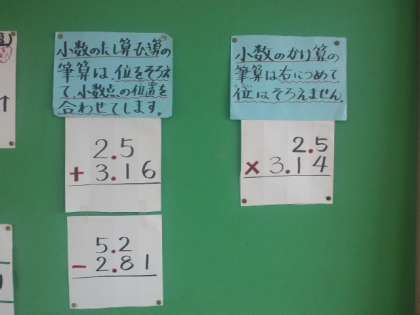 小数のたし算ひき算の
筆算は、位をそろえ
て、小数点の位置を
合わせてします。
2.5
+ 3.16
5.2
- 2.81
小数のかけ算の
筆算は右につめて
位はそろえません。
2.5
× 3.14